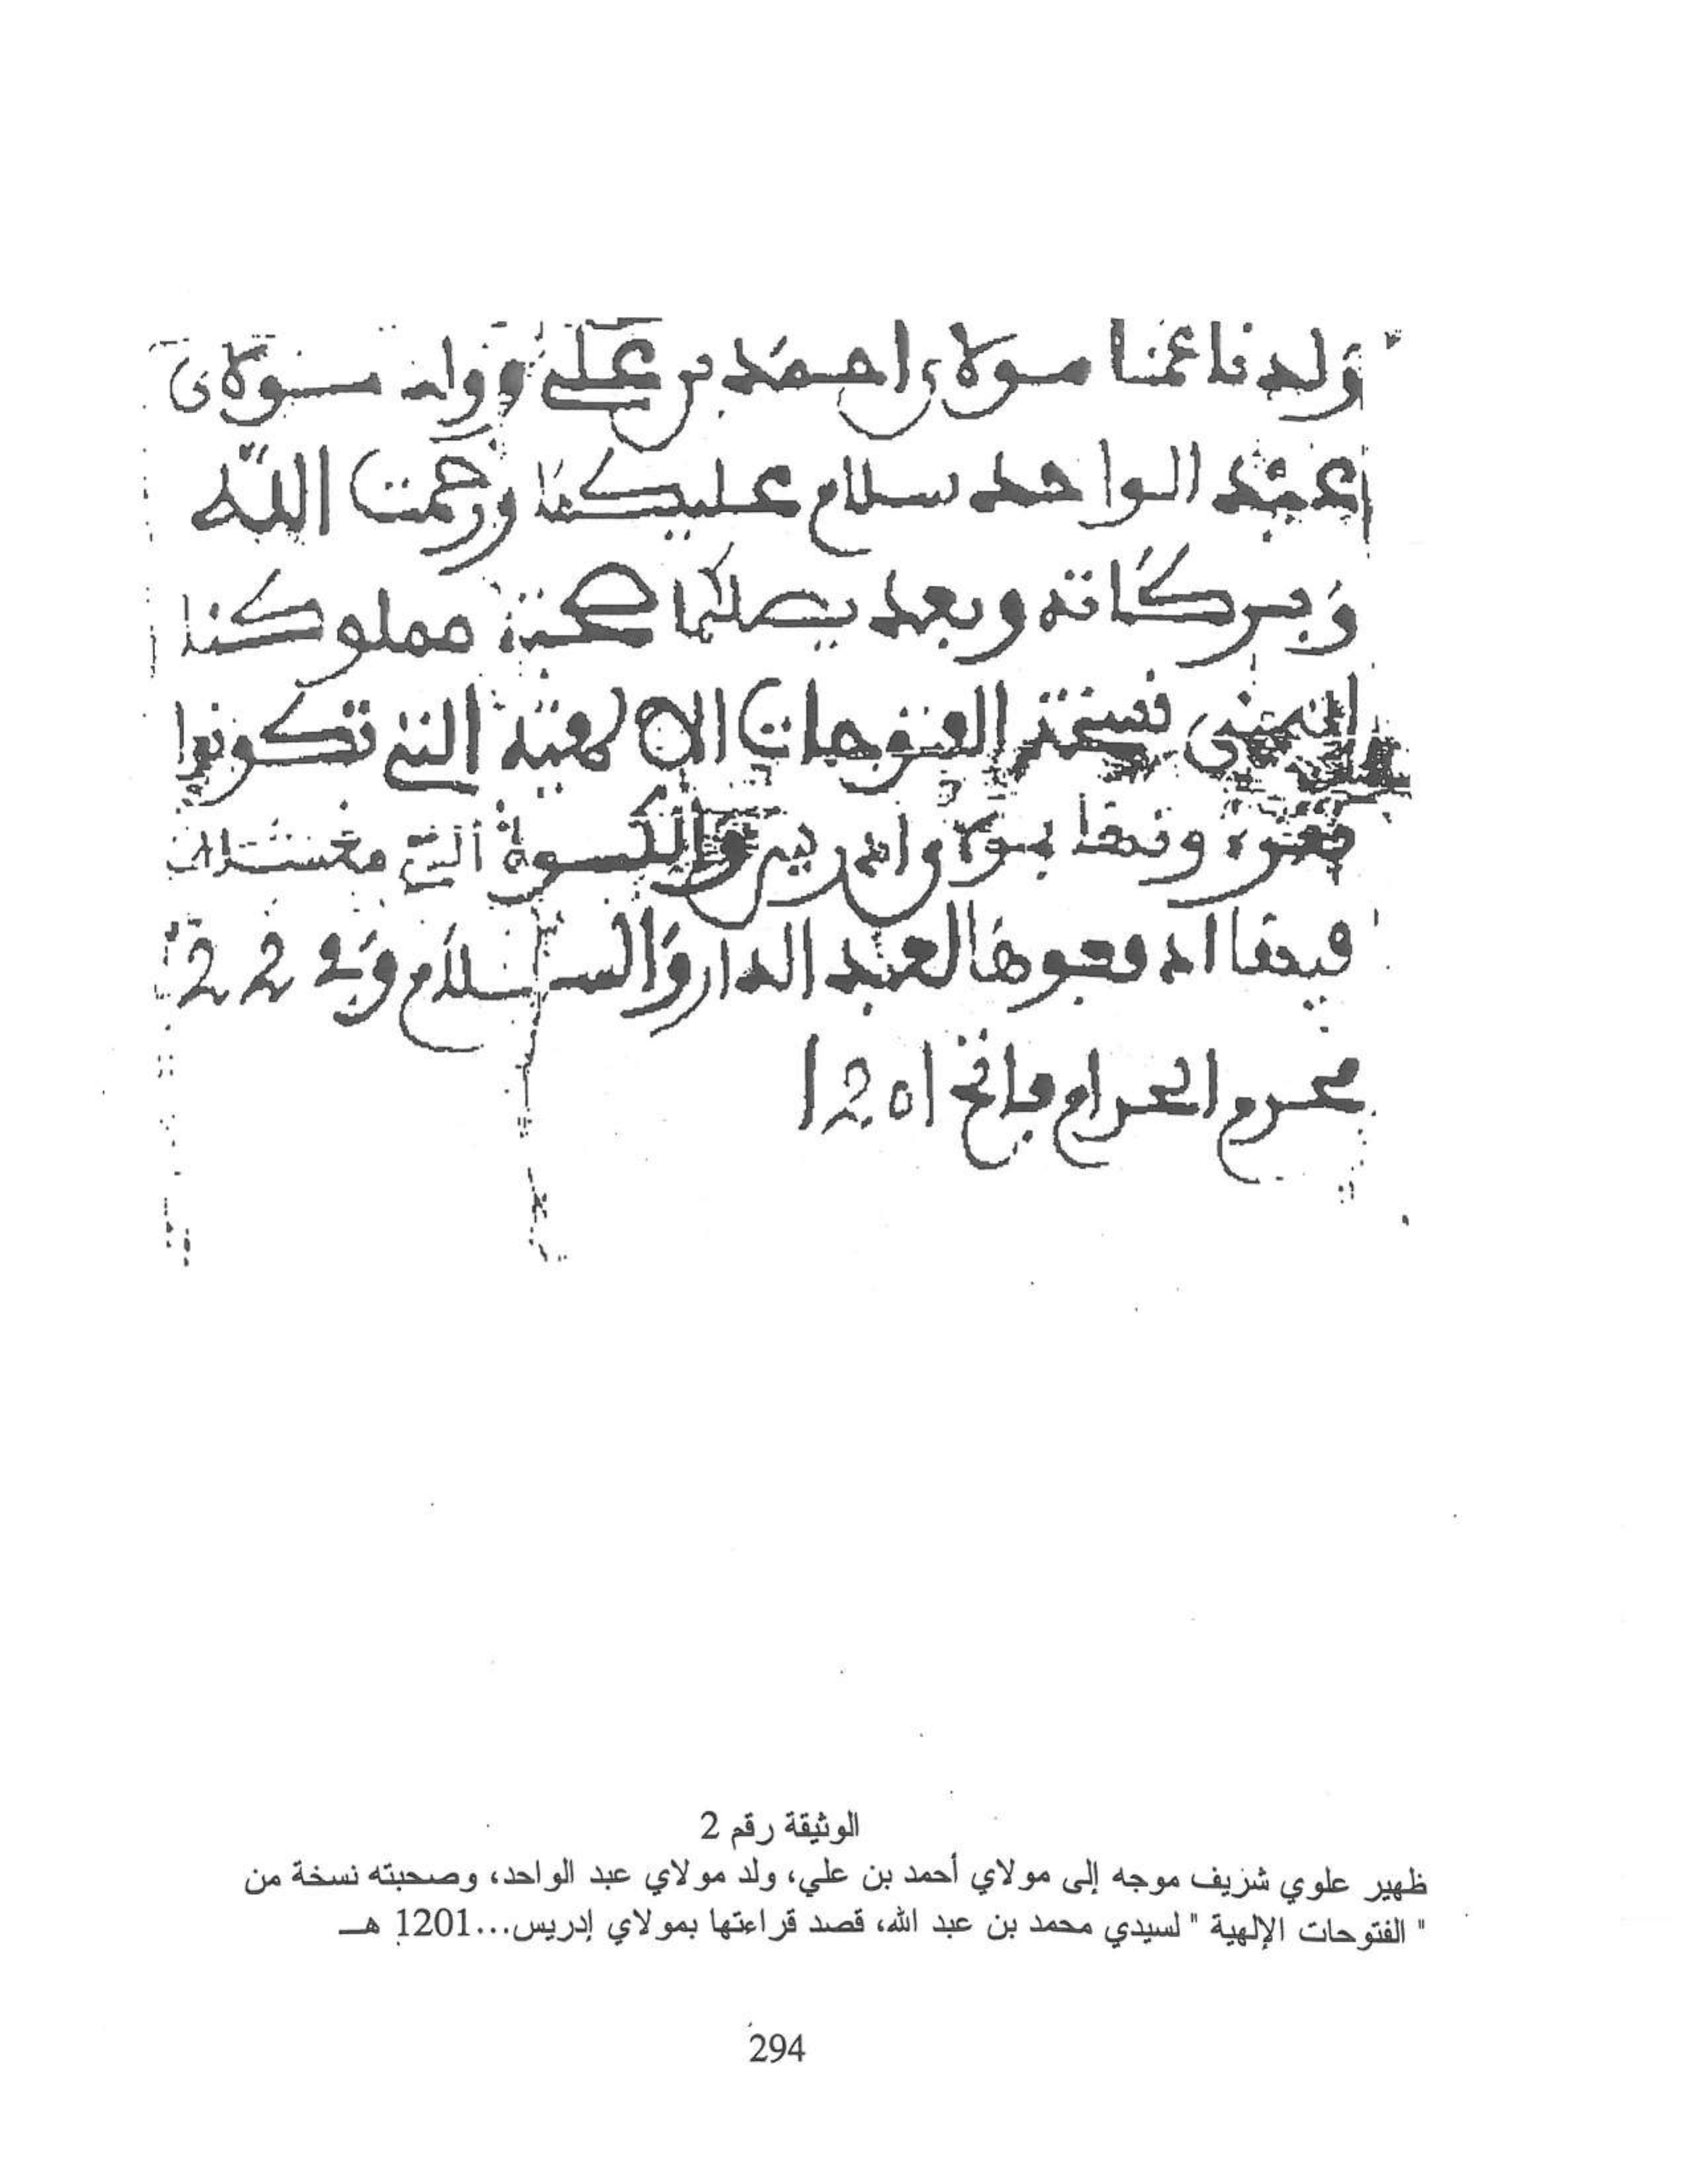 ولدنا عمنا مولاي احمد بن علي وولد مولاي
عبد الواحد سلام عليكما ورحمت الله
وبركاته وبعد يصلكما صحبة مملوكنا
نسخة الفتوحات الالهية التي تكونوا
وقفا بمولاي ادريس والكسوة التي
ادفعوها لعبد الدار والسلام وفي 22
محرم الحرام فاتح 1201
الوثيقة رقم 2
ظهير علوي شريف موجه إلى مولاي أحمد بن علي، ولد مولاي عبد الواحد، وصحبته نسخة من
" الفتوحات الإلهية " لسيدي محمد بن عبد الله، قصد قراءتها بمولاي إدريس...1201 هـ
294